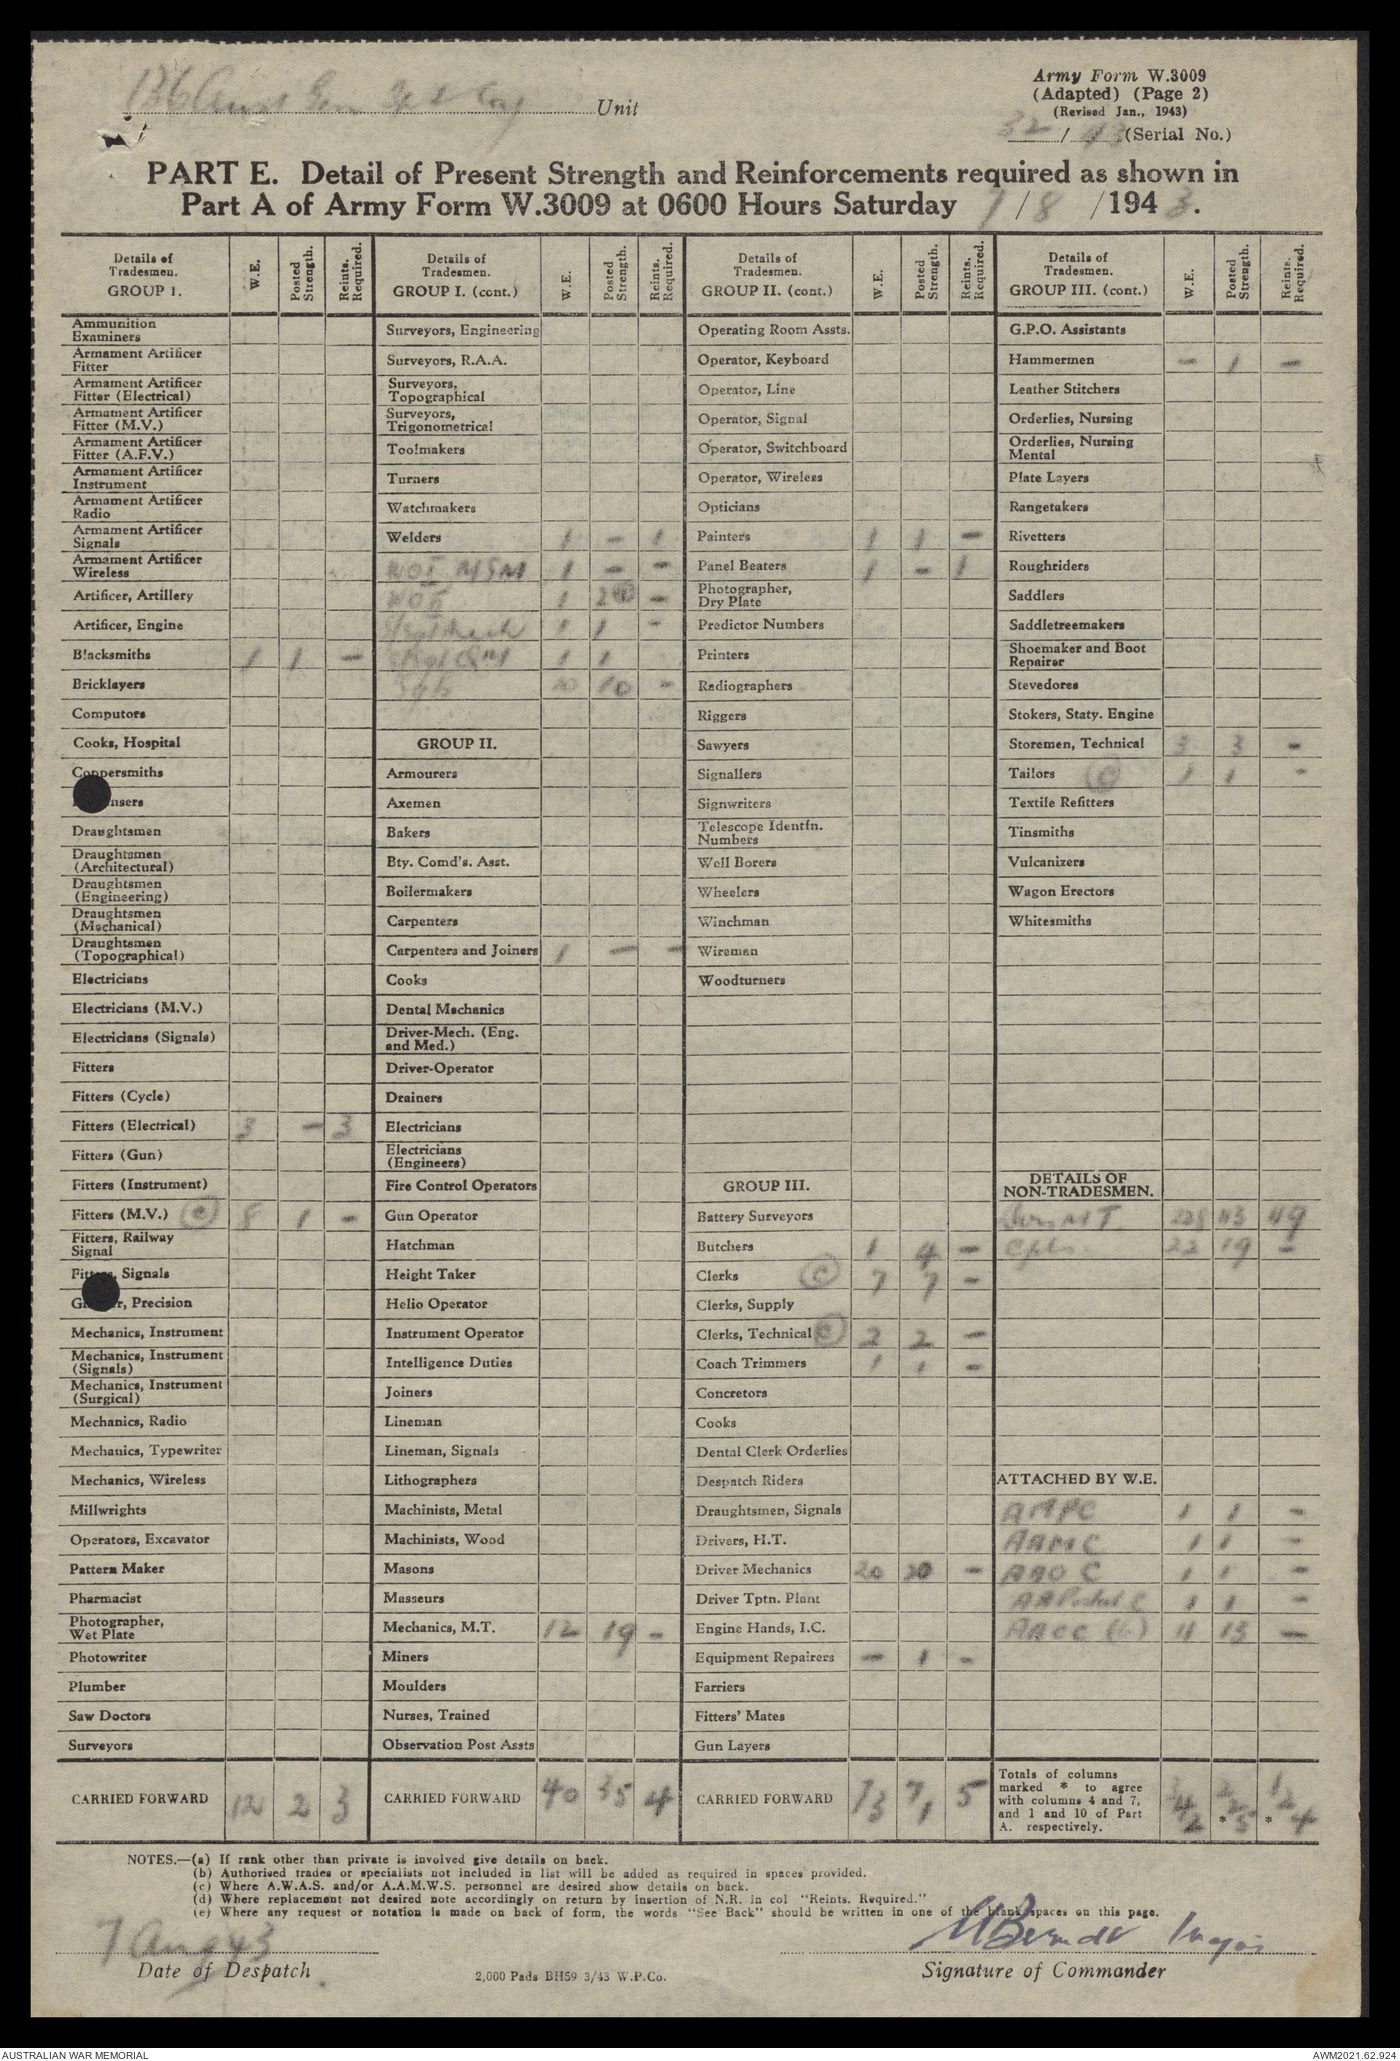 136 Aust Gen Tpt Coy Unit
Army Form W.3009
(Adapted) (Page 2)
(Revised Jan., 1943)
32 / 43 (Serial No.)
PART E. Detail of Present Strength and Reinforcements required as shown in
Part A of Army Form W.3009 at 0600 Hours Saturday 7 / 8 /1943.
Details of Tradesmen. GROUP 1. W.E. Posted Strength. Reints. Required.
Ammunition Examiners
Armament Artificer Fitter
Armament Artificer Fitter (Electrical)
Armament Artificer Fitter (M.V.)
Armament Artificer Fitter (A.F.V.)
Armament Artificer Instrument
Armament Artificer Radio
Armament Artificer Signals
Armament Artificer Wireless
Artificer, Artillery
Artificer, Engine
Blacksmiths 1 1 -
Bricklayers
Computors
Cooks, Hospital
Coppersmiths
nsers
Draughtsmen
Draughtsmen (Architectural)
Draughtsmen (Engineering)
Draughtsmen (Mechanical)
Draughtsmen (Topographical)
Electricians
Electricians (M.V.)
Electricians (Signals)
Fitters
Fitters (Cycle)
Fitters (Electrical) 3 - 3
Fitters (Gun)
Fitters (Instrument)
Fitters (M.V.) (c) 8 1 -
Fitters, Railway Signal
Fitters, Signals
G r, Precision
Mechanics, Instrument
Mechanics, Instrument (Signals)
Mechanics, Instrument (Surgical)
Mechanics, Radio
Mechanics, Typewriter
Mechanics, Wireless
Millwrights
Operators, Excavator
Pattern Maker
Pharmacist
Photographer, Wet Plate
Photowriter
Plumber
Saw Doctors
Surveyors
CARRIED FORWARD 12 2 3
Details of Tradesmen. GROUP I. (cont.) W.E. Posted Strength. Reints. Required.
Surveyors, Engineering
Surveyors, R.A.A.
Surveyors, Topographical
Surveyors, Trigonometrical
Toolmakers
Turners
Watchmakers
Welders 1 - 1
WOI MSM 1 - -
WOII 1 2 -
S/Sgt Mech 1 1 -
S/Sgt CQM 1 1
Sgts 10 10 -
GROUP II.
Armourers
Axemen
Bakers
Bty. Comd's. Asst.
Boilermakers
Carpenters
Carpenters and Joiners 1 - -
Cooks
Dental Mechanics
Driver-Mech. (Eng. and Med.)
Driver-Operator
Drainers
Electricians
Electricians (Engineers)
Fire Control Operators
Gun Operator
Hatchman
Height Taker
Helio Operator
Instrument Operator
Intelligence Duties
Joiners
Lineman
Lineman, Signals
Lithographers
Machinists, Metal
Machinists, Wood
Masons
Masseurs
Mechanics, M.T. 12 19 -
Miners
Moulders
Nurses, Trained
Observation Post Assts
CARRIED FORWARD 40 35 4
Details of Tradesmen. GROUP II. (cont.) W.E. Posted Strength. Reints. Required.
Operating Room Assts.
Operator, Keyboard
Operator, Line
Operator, Signal
Operator, Switchboard
Operator, Wireless
Opticians
Painters 1 1 -
Panel Beaters 1 - 1
Photographer, Dry Plate
Predictor Numbers
Printers
Radiographers
Riggers
Sawyers
Signallers
Signwriters
Telescope Identfn. Numbers
Well Borers
Wheelers
Winchman
Wireman
Woodturners
GROUP III.
Battery Surveyors
Butchers 1 4 -
Clerks (c) 7 7 -
Clerks, Supply
Clerks, Technical (c) 2 2 -
Coach Trimmers 1 1 -
Concretors
Cooks
Dental Clerk Orderlies
Despatch Riders
Draughtsmen, Signals
Drivers, H.T.
Driver Mechanics 20 20 -
Driver Tptn. Plant
Engine Hands, I.C.
Equipment Repairers - 1 -
Farriers
Fitters' Mates
Gun Layers
CARRIED FORWARD 73 71 5
Details of Tradesmen. GROUP III. (cont.) W.E. Posted Strength. Reints. Required.
G.P.O. Assistants
Hammermen - 1 -
Leather Stitchers
Orderlies, Nursing
Orderlies, Nursing Mental
Plate Layers
Rangetakers
Rivetters
Roughriders
Saddlers
Saddletreemakers
Shoemaker and Boot Repairer
Stevedores
Stokers, Staty. Engine
Storemen, Technical 3 3 -
Tailors (c) 1 1 -
Textile Refitters
Tinsmiths
Vulcanizers
Wagon Erectors
Whitesmiths
DETAILS OF NON-TRADESMEN.
Dvrs MT
Cpls 22 19 -
ATTACHED BY W.E.
AMPC 1 1 -
AAMC 1 1 -
AAOC 1 1 -
AAPostal C 1 1 -
AACC (b) 11 13 -
Totals of columns marked * to agree with columns 4 and 7, and 1 and 10 of Part A. respectively. 342 * 225 * 124
NOTES.—(a) If rank other than private is involved give details on back.
(b) Authorised trades or specialists not included in list will be added as required in spaces provided.
(c) Where A.W.A.S. and/or A.A.M.W.S. personnel are desired show details on back.
(d) Where replacement not desired note accordingly on return by insertion of N.R. in col "Reints. Required."
(e) Where any request or notation is made on back of form, the words "See Back" should be written in one of the blank spaces on this page.
7 Aug 43
Major
Date of Despatch
2,000 Pads BH59 3/43 W.P.Co.
Signature of Commander
AUSTRALIAN WAR MEMORIAL
AWM2021.62.924